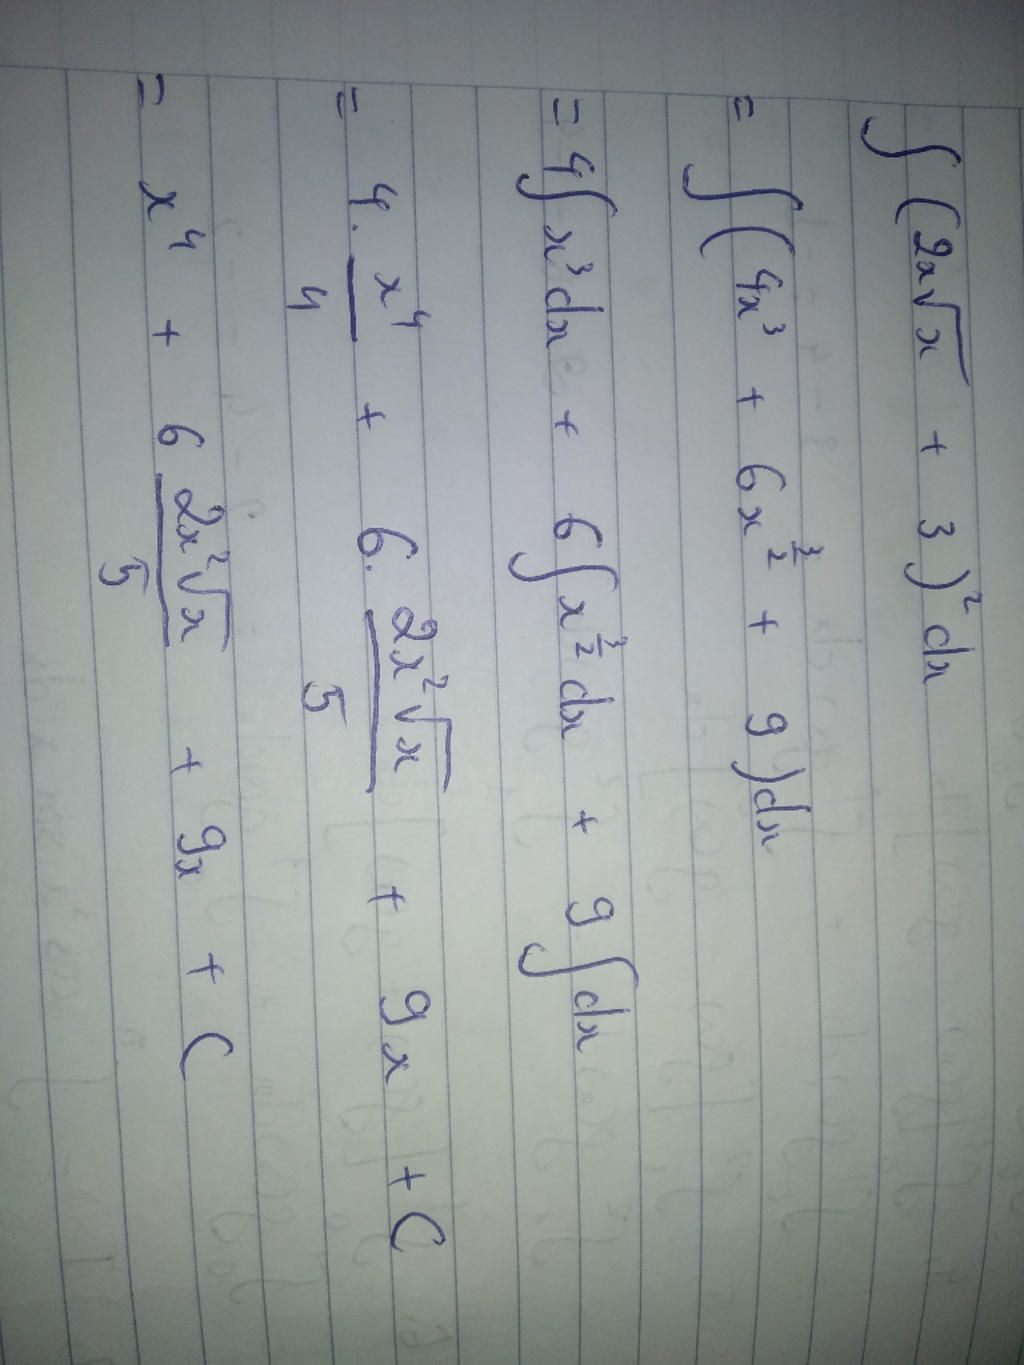 ∫(2x√x + 3)² dx
= ∫(4x³ + 6x^(3/2) + 9)dx
= 4∫x³dx + 6∫x^(3/2)dx + 9∫dx
= 4 · x⁴/4 + 6 · 2x²√x/5 + 9x + C
= x⁴ + 6 2x²√x/5 + 9x + C